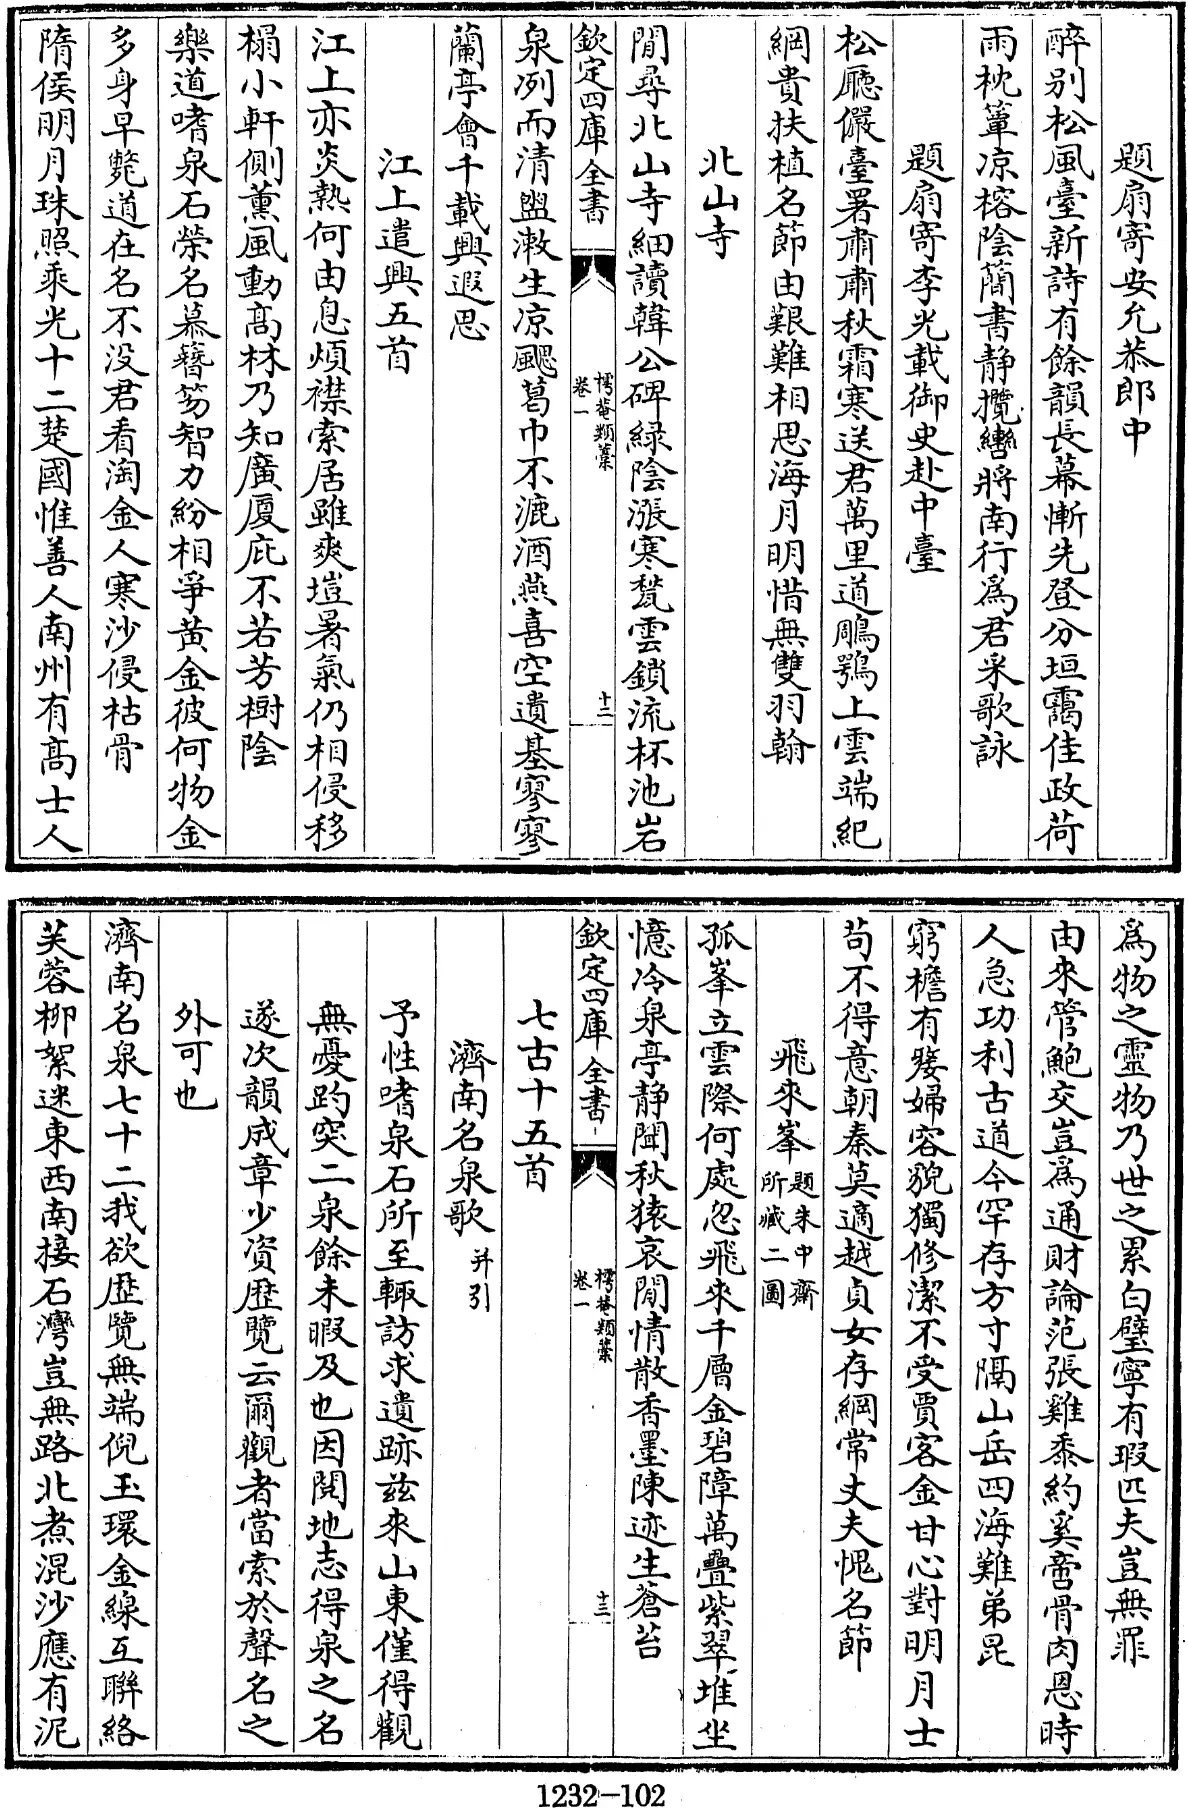 題扇寄安允恭郎中
醉别松風臺新詩有餘韻長幕慚先登分垣靄佳政荷
雨枕簟凉榕陰蘭書静攬轡將南行為君采歌詠
題扇寄李光載御史赴中臺
松廳儼臺署肅肅秋霜寒送君萬里道鵰鶚上雲端紀
綱貴扶植名節由艱難相思海月明惜無雙羽翰
北山寺
閒尋北山寺細讀韓公碑緑陰漲寒甃雲鎖流杯池岩
欽定四庫全書
樗菴類藁
卷一
十二
泉冽而清盥漱生凉颸葛巾不漉酒燕喜空遺基寥寥
蘭亭會千載興遐思
江上遣興五首
江上亦炎熱何由息煩襟索居雖爽塏暑氣仍相侵移
榻小軒側薰風動髙林乃知廣厦庇不若芳樹陰
樂道嗜泉石榮名慕簪笏智力紛相爭黄金彼何物金
多身早斃道在名不没君看淘金人寒沙侵枯骨
隋侯明月珠照乘光十二楚國惟善人南州有髙士人
為物之靈物乃世之累白璧寧有瑕匹夫豈無罪
由來管鮑交豈為通財論范張雞黍約奚啻骨肉恩時
人急功利古道今罕存方寸隔山岳四海難弟昆
窮檐有嫠婦容貌獨修潔不受賈客金甘心對明月士
茍不得意朝秦莫適越貞女存綱常丈夫愧名節
飛來峯題朱中齋所藏二圖
孤峯立雲際何處忽飛來千層金碧障萬疊紫翠堆坐
憶冷泉亭静聞秋猿哀閒情散香墨陳迹生蒼苔
欽定四庫全書
樗菴類藁
卷一
十三
七古十五首
濟南名泉歌并引
予性嗜泉石所至輙訪求遺跡兹來山東僅得觀
無憂趵突二泉餘未暇及也因閱地志得泉之名
遂次韻成章少資歴覽云爾觀者當索於聲名之
外可也
濟南名泉七十二我欲歴覽無端倪玉環金線互聯絡
芙蓉柳絮迷東西南接石灣豈無路北煮混沙應有泥
1232-102